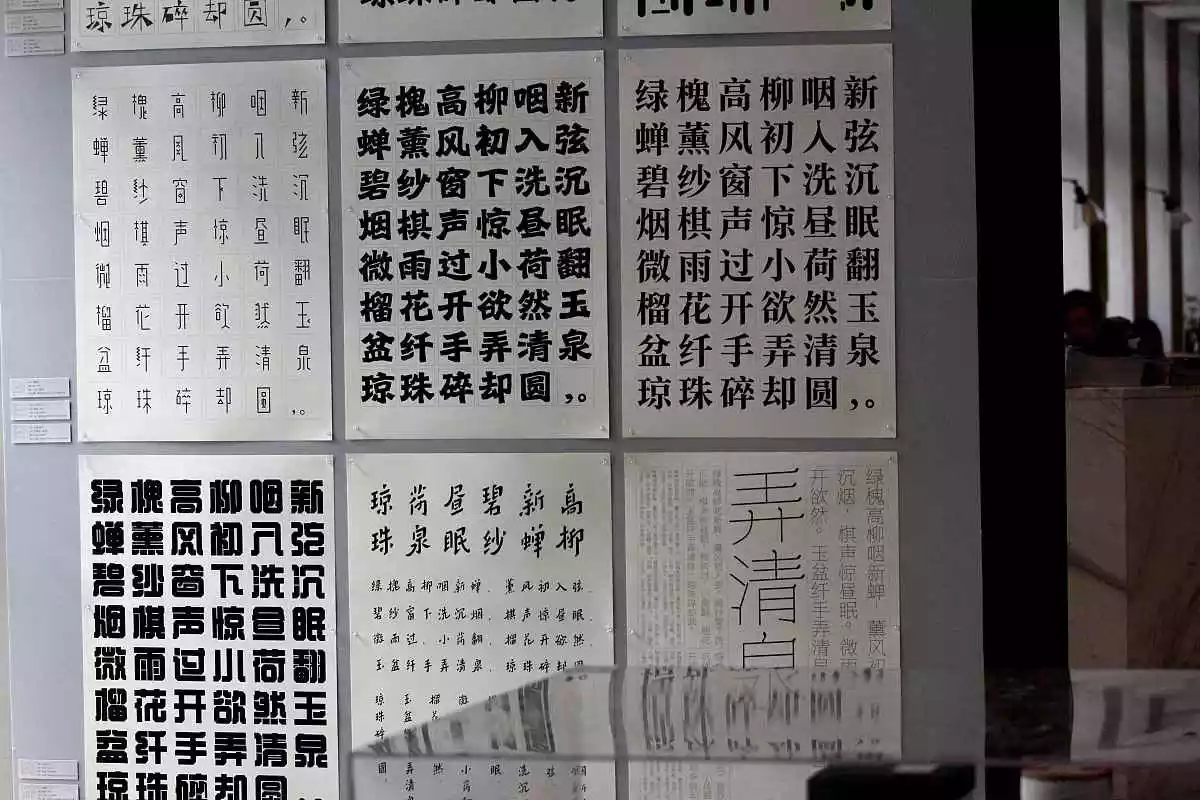 琼珠碎却圆,。
绿槐高柳咽新
蝉薰风初入弦
碧纱窗下洗沉
烟棋声惊昼眠
微雨过小荷翻
榴花开欲然玉
盆纤手弄清泉
琼珠碎却圆,。
绿槐高柳咽新
蝉薰风初入弦
碧纱窗下洗沉
烟棋声惊昼眠
微雨过小荷翻
榴花开欲然玉
盆纤手弄清泉
琼珠碎却圆,。
绿槐高柳咽新
蝉薰风初入弦
碧纱窗下洗沉
烟棋声惊昼眠
微雨过小荷翻
榴花开欲然玉
盆纤手弄清泉
琼珠碎却圆,。
绿槐高柳咽新
蝉薰风初入弦
碧纱窗下洗沉
烟棋声惊昼眠
微雨过小荷翻
榴花开欲然玉
盆纤手弄清泉
琼珠碎却圆,。
高柳
新蝉
碧纱
昼眠
荷泉
琼珠
绿槐高柳咽新蝉。薰风初入弦。
碧纱窗下洗沉烟。棋声惊昼眠。
微雨过,小荷翻。榴花开欲然。
玉盆纤手弄清泉。琼珠碎却圆
绿槐高柳咽新蝉。薰风初
沉烟,棋声惊昼眠。微雨
开欲然。玉盆纤手弄清
弄清泉